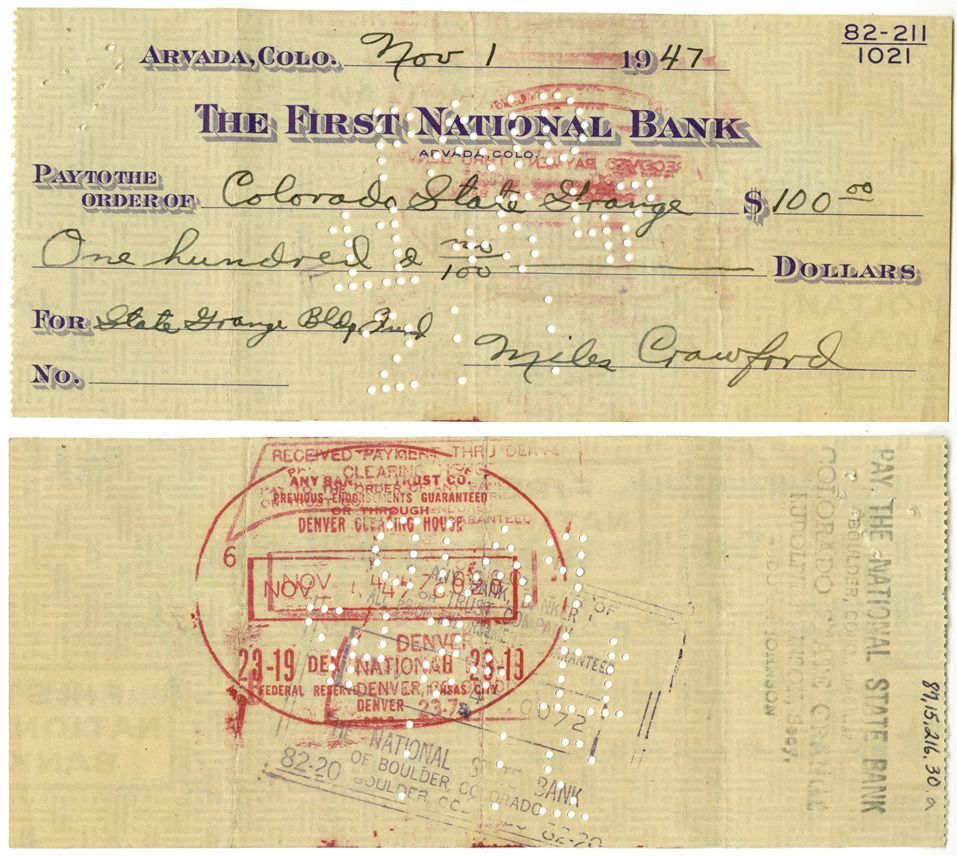 82-211
1021
ARVADA, COLO. Nov 1 1947
THE FIRST NATIONAL BANK
ARVADA, COLO.
PAY TO THE
ORDER OF Colorado State Grange $ 100 00
One hundred & no/100 DOLLARS
FOR State Grange Bldg Fund
Miles Crawford
No.
RECEIVED PAYMENT THRU DENVER
CLEARING HOUSE
ANY BANK TRUST CO.
PAY TO THE ORDER OF ANY BANK
PREVIOUS ENDORSEMENTS GUARANTEED
OR THROUGH
DENVER CLEARING HOUSE
6
NOV 4 47
NOV
DENVER
23-19 DEN NATIONAL 23-19
FEDERAL RESERVE DENVER, KANSAS CITY
DENVER 23-7
ANY BANK, BANKER
OR TRUST COMPANY
0072
THE NATIONAL STATE BANK
OF BOULDER, COLORADO
82-20 BOULDER, 82-20
PAY THE NATIONAL STATE BANK
BOULDER, COLO.
COLORADO STATE GRANGE
RUDOLPH JOHNSON
87,15,216,30 a